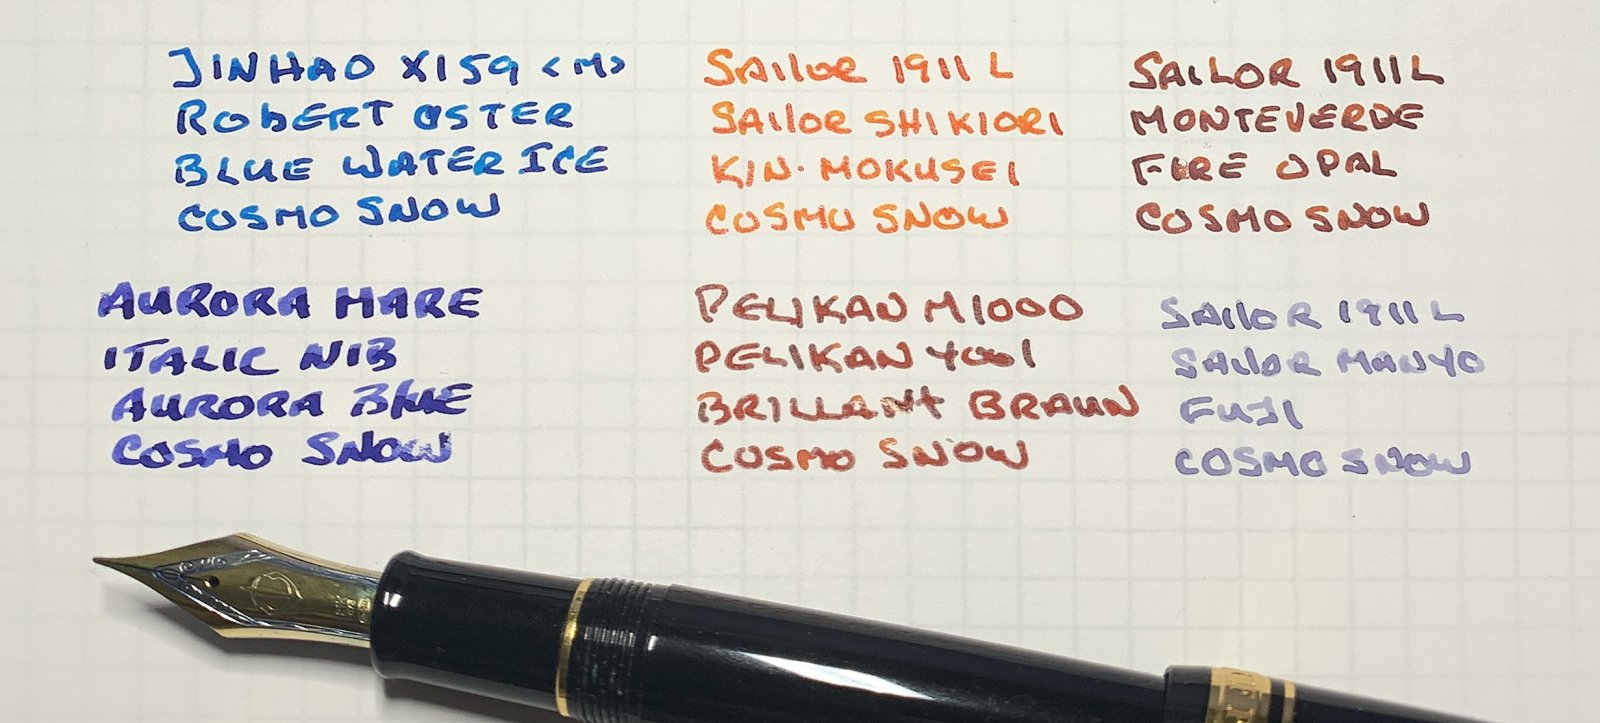 JINHAO X159 <M>
ROBERT OSTER
BLUE WATER ICE
COSMO SNOW
SAILOR 1911 L
SAILOR SHIKIORI
KIN-MOKUSEI
COSMO SNOW
SAILOR 1911 L
MONTEVERDE
FIRE OPAL
COSMO SNOW
AURORA MARE
ITALIC NIB
AURORA BLUE
COSMO SNOW
PELIKAN M1000
PELIKAN 4001
BRILLANT BRAUN
COSMO SNOW
SAILOR 1911 L
SAILOR MANYO
FUJI
COSMO SNOW